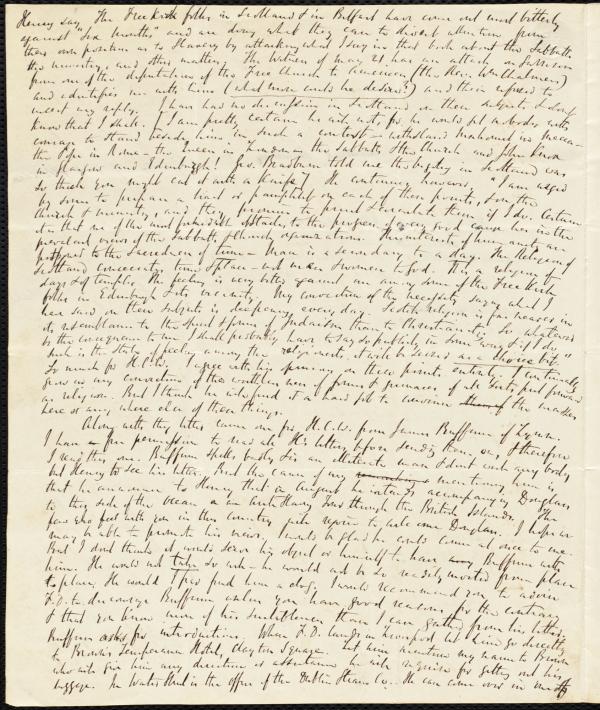 Henry says, The Free Kirk folks in Scotland & in Belfast have come out most bitterly
against "Six Months" and are doing what they can to divert attention from
their own position as to Slavery by attacking what I say in that book about the Sabbath,
the ministry, and other matters. The Witness of May 21 has an attack on Garrison
from one of the deputation of the Free Church to America (the Rev. Wm Chalmers)
and identifies me with him (what more could he desire?) and then refused to
insert any reply. I have had no discussion in Scotland on these subjects & don't
know that I shall. [I am pretty certain he will not, for he would get nobody with
courage to stand beside him in such a contest — withstand Mahomed in Mecca —
the Pope in Rome — the Queen in London the Sabbath & the Church and John Knox
in Glasgow and Edinburgh! Geo. Bradburn told me the bigotry in Scotland was
so thick you might cut it with a knife] He continues however, "I am urged
by some to prepare a tract or pamphlet on each of these points, on the
Church & ministry, and they promise to print & circulate them if I do. Certain
it is that one of the most formidable obstacles to the progress of every good cause lies in the
prevalent views of the Sabbath & church organizations. The interests of humanity are
postponed to the sacredness of time — Man is secondary to a day. The Religion of
Scotland consecrates time & place — not men & women to God. It is a religion of
days & of temples. The feeling is very bitter against me among some of the Free Kirk
folks in Edinburgh & its vicinity. My conviction of the necessity of saying what I
have said on these subjects is deepening every day. Scotch religion is far nearer in
its resemblance to the spirit & forms of Judaism than to Christianity. So whatever
be the consequence to me I shall probably have to say so publicly in some way & if I do"
such is the state of feeling among the religionists, it will be seized as a choice bit."
So much for H.C.W. I agree with his opinions on these points entirely. I continually
grow in my conviction of the worthlessness of forms & grimaces of all sorts, put forward
as religion. But I think he will find it a hard job to convince of the masses
here or any where else of these things.
Along with thy letter came one for H.C.W. from James Buffum of Lynn.
I have permission to read all H's letters before sending them on, & therefore
I read this one. Buffum spells badly for an illiterate man & don't wish any body
but Henry to see his letter. But the cause of my mentioning him is
that he announces to Henry that in August he intends accompanying Douglass
to this side of the ocean on an Anti Slavery Tour through the British Islands. The
few who feel with you in this country will rejoice to welcome Douglass. I hope we
may be able to promote his views. I would be glad he would come at once to me.
But I don't think it would serve his object or himself to have Buffum with
him. He would not take so well — he would not be so readily moved from place
to place, He would I fear find him a clog. I would recommend you to advise
F.D. to discourage Buffum unless you have good reasons for the contrary
& that you know more of his suitableness than I can gather from his letter.
Buffum asks for introductions. When F.D. lands in Liverpool let him go directly
to Brown's Temperance Hotel, Clayton Square. Let him mention my name to Brown
who will give him any direction or assistance he will require for getting out his
luggage. In Water Street is the office of the Dublin Steam Co. He can come over in one of